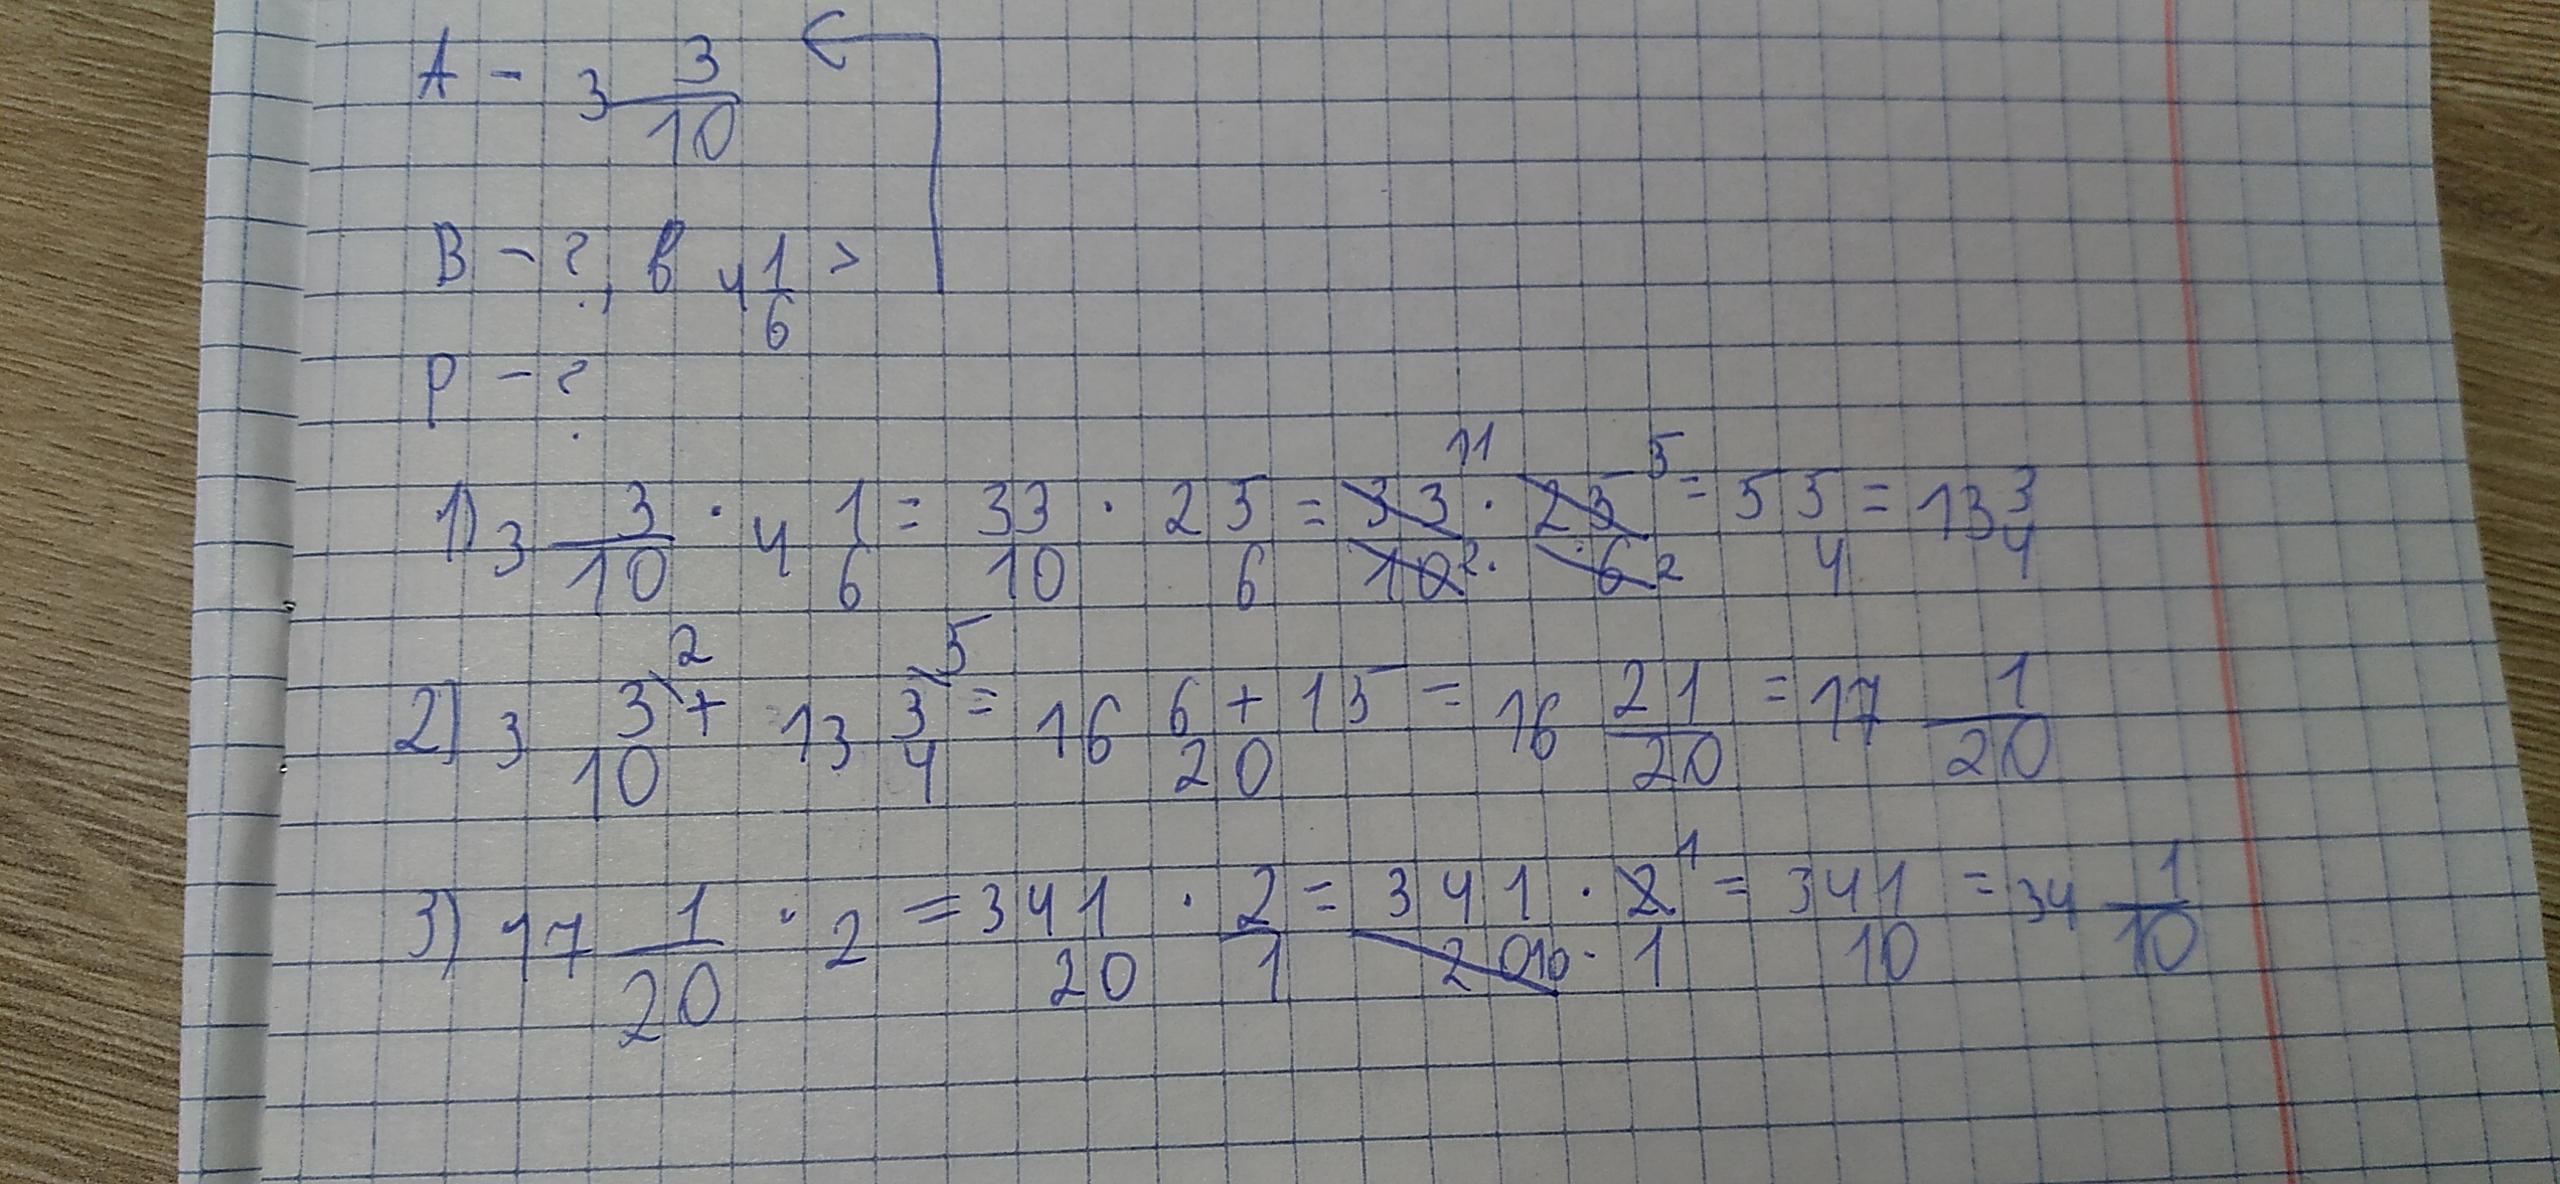 A - 3 3/10
B - ?, в 4 1/6 >
P - ?
1) 3 3/10 · 4 1/6 = 33/10 · 25/6 = 33 11 · 25 5 / 10 2 · 6 2 = 55/4 = 13 3/4
2) 3 3/10 2 + 13 3/4 5 = 16 6+15/20 = 16 21/20 = 17 1/20
3) 17 1/20 · 2 = 341/20 · 2/1 = 341 · 2 1 / 20 10 · 1 = 341/10 = 34 1/10